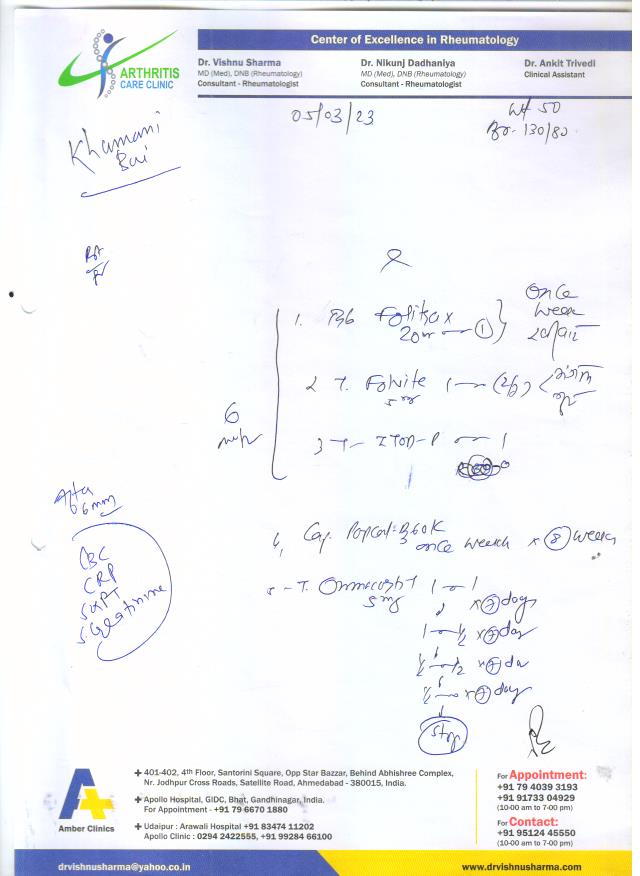 ARTHRITIS
CARE CLINIC
Center of Excellence in Rheumatology
Dr. Vishnu Sharma
MD (Med), DNB (Rheumatology)
Consultant - Rheumatologist
Dr. Nikunj Dadhaniya
MD (Med), DNB (Rheumatology)
Consultant - Rheumatologist
Dr. Ankit Trivedi
Clinical Assistant
05/03/23
Wt 50
130/80
Khamani
Bai
1. Folitrax
20 1
Once
week
2 T. Folvite 1
5 mg
6
3 T- 1
After
6
CBC
CRP
SGPT
S. Creatinine
4, Cap. 60K
once week x 8 weeks
5 - T. 1 - 1
5 mg
x 7 days
1 - 1/2 x 7 day
1/2 - 1/2 x 7 da
1/2 x 7 day
Stop
Amber Clinics
401-402, 4th Floor, Santorini Square, Opp Star Bazzar, Behind Abhishree Complex,
Nr. Jodhpur Cross Roads, Satellite Road, Ahmedabad - 380015, India.
Apollo Hospital, GIDC, Bhat, Gandhinagar, India.
For Appointment - +91 79 6670 1880
Udaipur : Arawali Hospital +91 83474 11202
Apollo Clinic : 0294 2422555, +91 99284 66100
For Appointment:
+91 79 4039 3193
+91 91733 04929
(10-00 am to 7-00 pm)
For Contact:
+91 95124 45550
(10-00 am to 7-00 pm)
drvishnusharma@yahoo.co.in
www.drvishnusharma.com